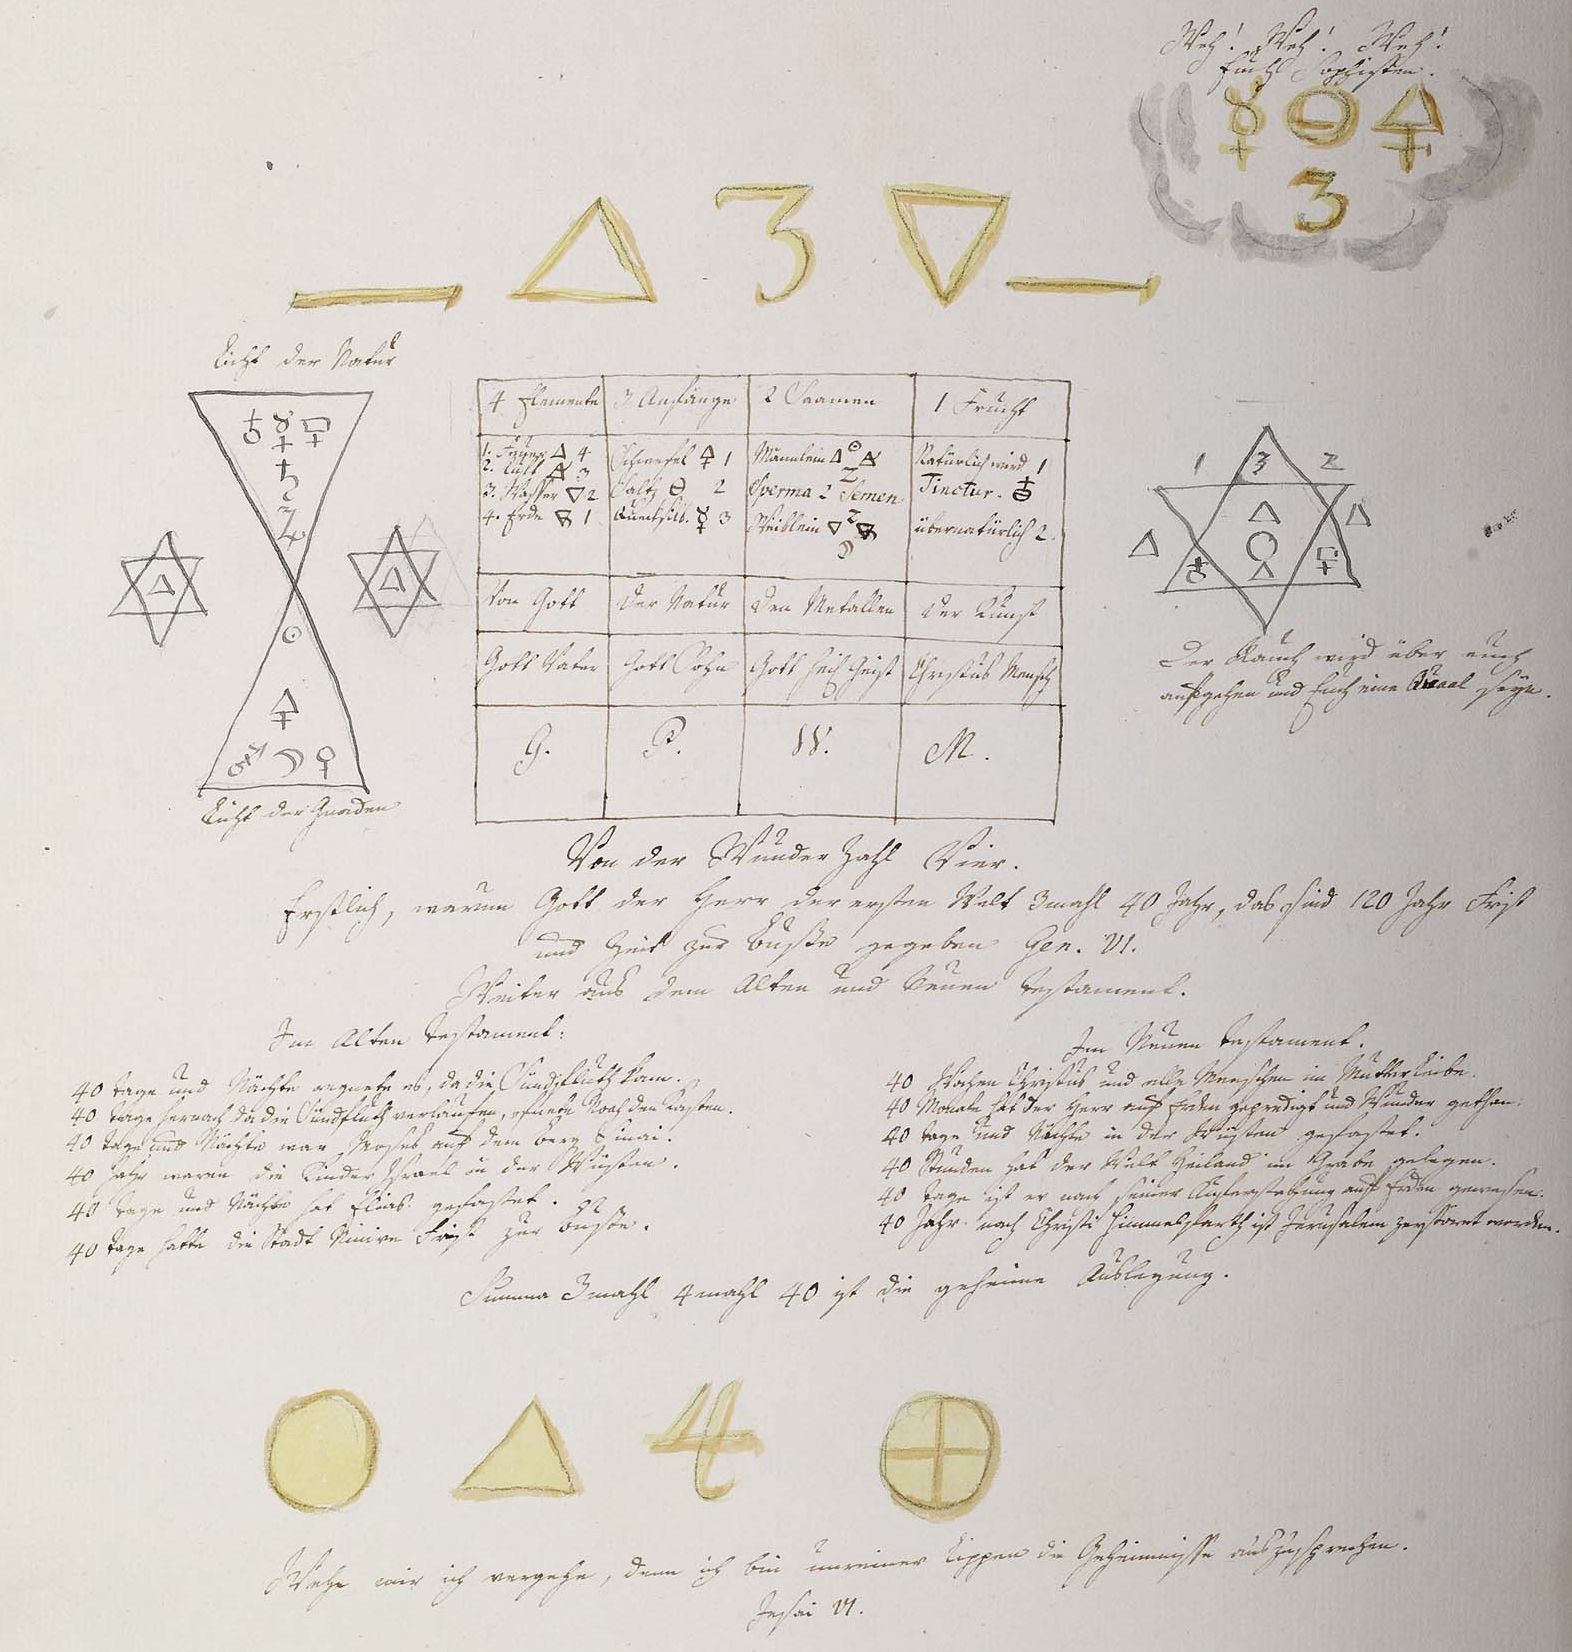 Weh! Weh! Weh!
Euch Sophisten.
3
3
Licht der Natur
4 Elemente 3 Anfänge 2 Saamen 1 Frucht
1. Feuer △ 4 Schwefel 🜍 1 Männlein △ ☉ 🜁 Natürlich wird 1
2. Luft 🜁 3
3. Wasser ▽ 2 Saltz 🜔 2 Sperma 2 Semen Tinctur. ♁
4. Erde 🜃 1 Quecksilb. ☿ 3 Weiblein ▽ 🜃 ☽ übernatürlich 2.
Von Gott Der Natur Den Metallen Der Kunst
Gott Vater Gott Sohn Gott Heil Geist Christus Mensch
G. P. W. M.
1 3 2
Der Rauch wird über euch
aufgehen und Euch eine Quaal seyn.
Licht der Gnaden
Von der Wunder Zahl Vier.
Erstlich, warum Gott der Herr der ersten Welt 3mahl 40 Jahr, das sind 120 Jahr Frist
und Zeit zur Buße gegeben Gen. VI.
Weiter aus dem Alten und Neuen Testament.
Im Alten Testament:
40 Tage und Nächte regnete es, da die Sündfluth kam.
40 Tage hernach da die Sündfluth verlaufen, öfnete Noah den Kasten.
40 Tage und Nächte war Moses auf dem Berg Sinai.
40 Jahr waren die Kinder Israel in der Wüsten.
40 Tage und Nächte hat Elias gefastet.
40 Tage hatte die Stadt Ninive Frist zur Buße.
Im Neuen Testament.
40 Wochen Christus und alle Menschen im Mutterleibe.
40 Monate hat der Herr auf Erden geprediget und Wunder gethan.
40 Tage und Nächte in der Wüsten gefastet.
40 Stunden hat der Welt Heiland im Grabe gelegen.
40 Tage ist er nach seiner Auferstehung auf Erden gewesen.
40 Jahr nach Christi Himmelfarth ist Jerusalem zerstöret worden.
Summa 3mahl 4mahl 40 ist die geheime Auslegung.
Wehe mir ich vergehe, denn ich bin unreiner Lippen die Geheimnisse auszusprechen.
Jesai VI.